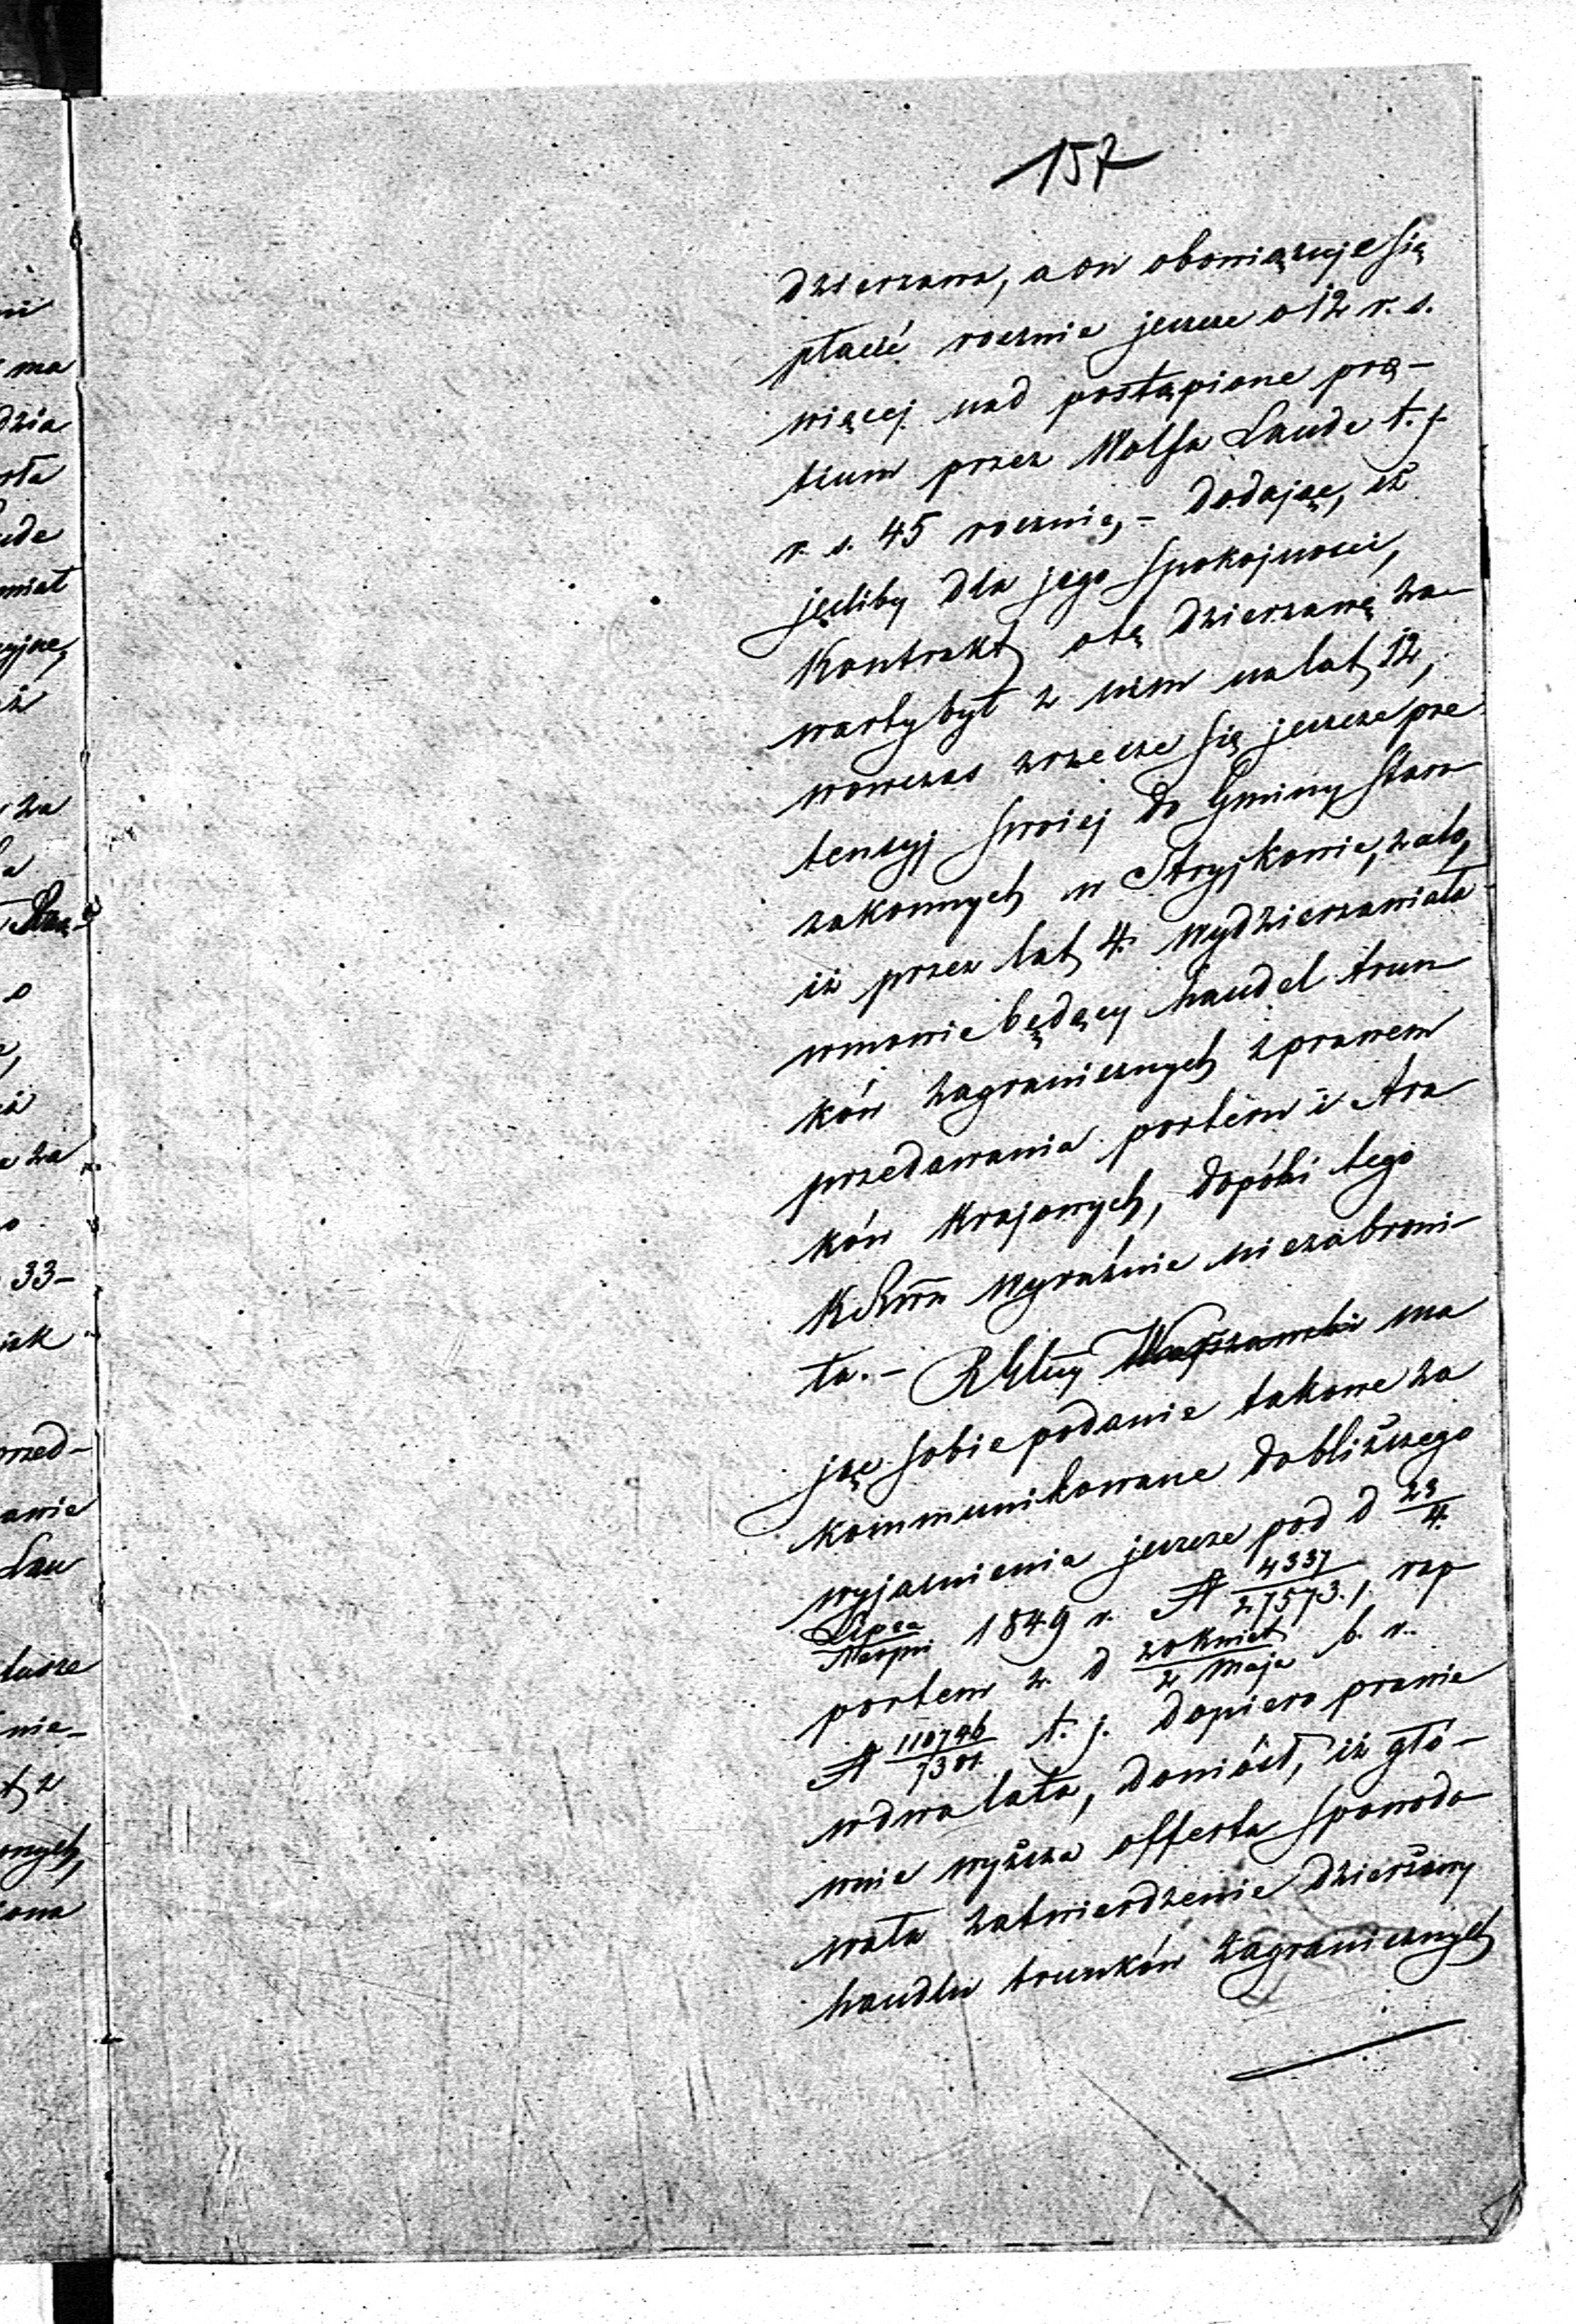 157
dzierzawa, a on obowiązuje się
płacić rocznie jeszcze o 12 r. s.
więcej nad postąpione prę-
tium przez Wolfa Laude t. j.
r. s. 45 rocznie, - dodając, iż
jeśliby dla jego spokojności,
Kontrakt o tę dzierzawę za-
warty był z nim na lat 12,
wówczas zrzecze się jeszcze pre
tensyj swoiej do Gminy Staro
zakonnych w Strykowie, za to,
iż przez lat 4. wydzierzawiała
w mowie będący handel trun
ków zagranicznych z prawem
przedawania porteru i Ara
ków Krajowych, dopóki tego
KRząn wyraźnie niezabroni-
ła. - RGłny Warszawski ma
jąc sobie podanie takowe za
kommunikowane do bliższego
wyjaśnienia jeszcze pod d 23/4.
Lipca/Sierpni 1849 r. N 4337/27573., rap
portem z d 20 Kwiet/2 Maja b. r.
N 110746/7301 t. j. dopiero prawie
w dwa lata, doniósł, iż głó-
wnie wyższa offerta spowodo
wała zatwierdzenie dzierżawy
handlu trunków zagranicznych
ni
ma
dzia
rła
ude
miał
iż
za
33-
rzed-
awie
Lau
nie-
onych,